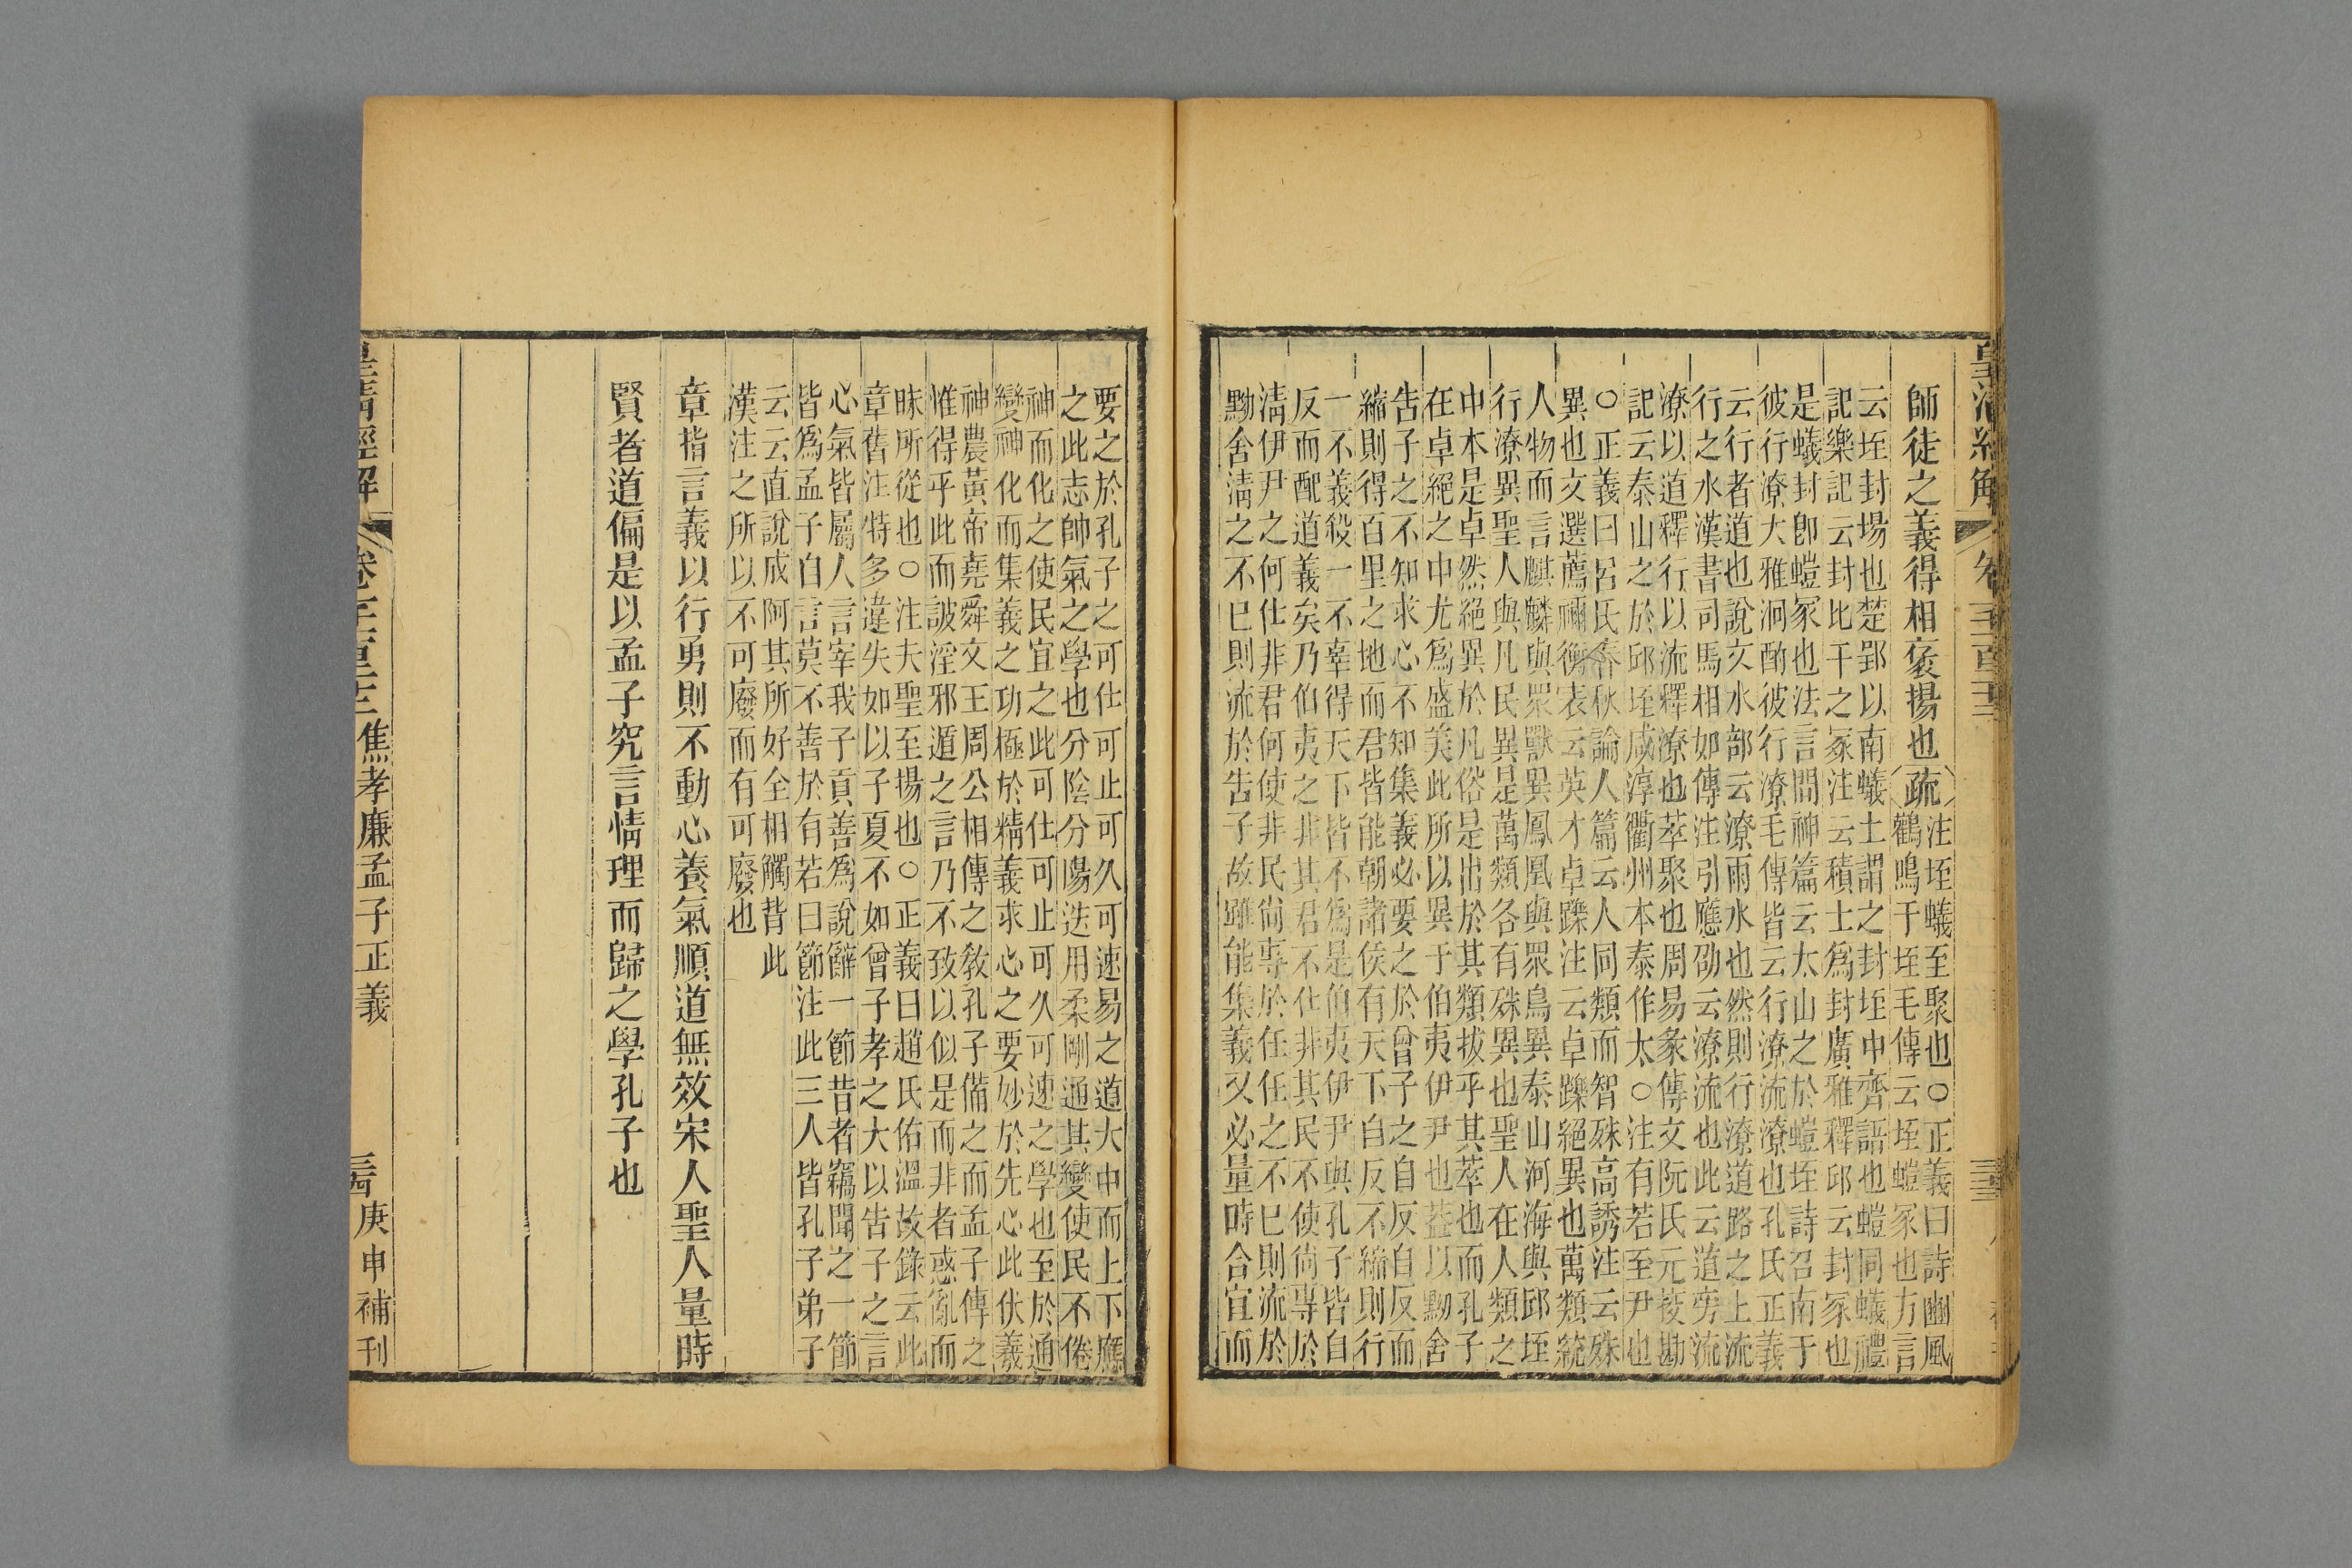 師徒之義得相褒揚也疏
注垤蟻至聚也○正義曰詩豳風
鸛鳴于垤毛傳云垤螘冢也方言
云垤封場也楚郢以南蟻土謂之封垤中齊語也螘同蟻禮
記樂記云封比干之冢注云積土爲封廣雅釋邱云封冢也
是蟻封卽螘冢也法言問神篇云太山之於螘垤詩召南于
彼行潦大雅泂酌彼行潦毛傳皆云行潦流潦也孔氏正義
云行者道也說文水部云潦雨水也然則行潦道路之上流
行之水漢書司馬相如傳注引應劭云潦流也此云道旁流
潦以道釋行以流釋潦也萃聚也周易彖傳文阮氏元校勘
記云泰山之於邱垤咸淳衢州本泰作太○注有若至尹也
○正義曰呂氏春秋論人篇云人同類而智殊高誘注云殊
異也文選薦禰衡表云英才卓躒注云卓躒絕異也萬類統
人物而言麒麟與眾獸異鳳凰與眾鳥異泰山河海與邱垤
行潦異聖人與凡民異是萬類各有殊異也聖人在人類之
中本是卓然絕異於凡俗是出於其類拔乎其萃也而孔子
在卓絕之中尤爲盛美此所以異于伯夷伊尹也葢以黝舍
告子之不知求心不知集義必要之於曾子之自反自反而
縮則得百里之地而君皆能朝諸侯有天下自反不縮則行
一不義殺一不辜得天下皆不爲是伯夷伊尹與孔子皆自
反而配道義矣乃伯夷之非其君不仕非其民不使尙專於
淸伊尹之何仕非君何使非民尙專於任任之不已則流於
黝舍淸之不已則流於告子故雖能集義又必量時合宜而
要之於孔子之可仕可止可久可速易之道大中而上下應
之此志帥氣之學也分陰分陽迭用柔剛通其變使民不倦
神而化之使民宜之此可仕可止可久可速之學也至於通
變神化而集義之功極於精義求心之要妙於先心此伏羲
神農黃帝堯舜文王周公相傳之敎孔子備之而孟子傳之
惟得乎此而詖淫邪遁之言乃不致以似是而非者惑亂而
昧所從也○注夫聖至揚也○正義曰趙氏佑溫故錄云此
章舊注特多違失如以子夏不如曾子孝之大以告子之言
心氣皆屬人言宰我子貢善爲說辭一節昔者竊聞之一節
皆爲孟子自言莫不善於有若曰節注此三人皆孔子弟子
云云直說成阿其所好全相觸背此
漢注之所以不可廢而有可廢也
章指言義以行勇則不動心養氣順道無效宋人聖人量時
賢者道偏是以孟子究言情理而歸之學孔子也
焦孝廉孟子正義
庚申補刊